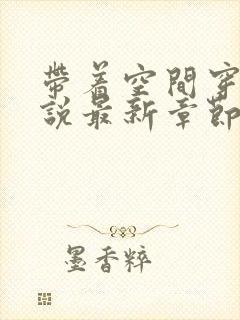 帶着空間穿
說最新章節
墨香粹